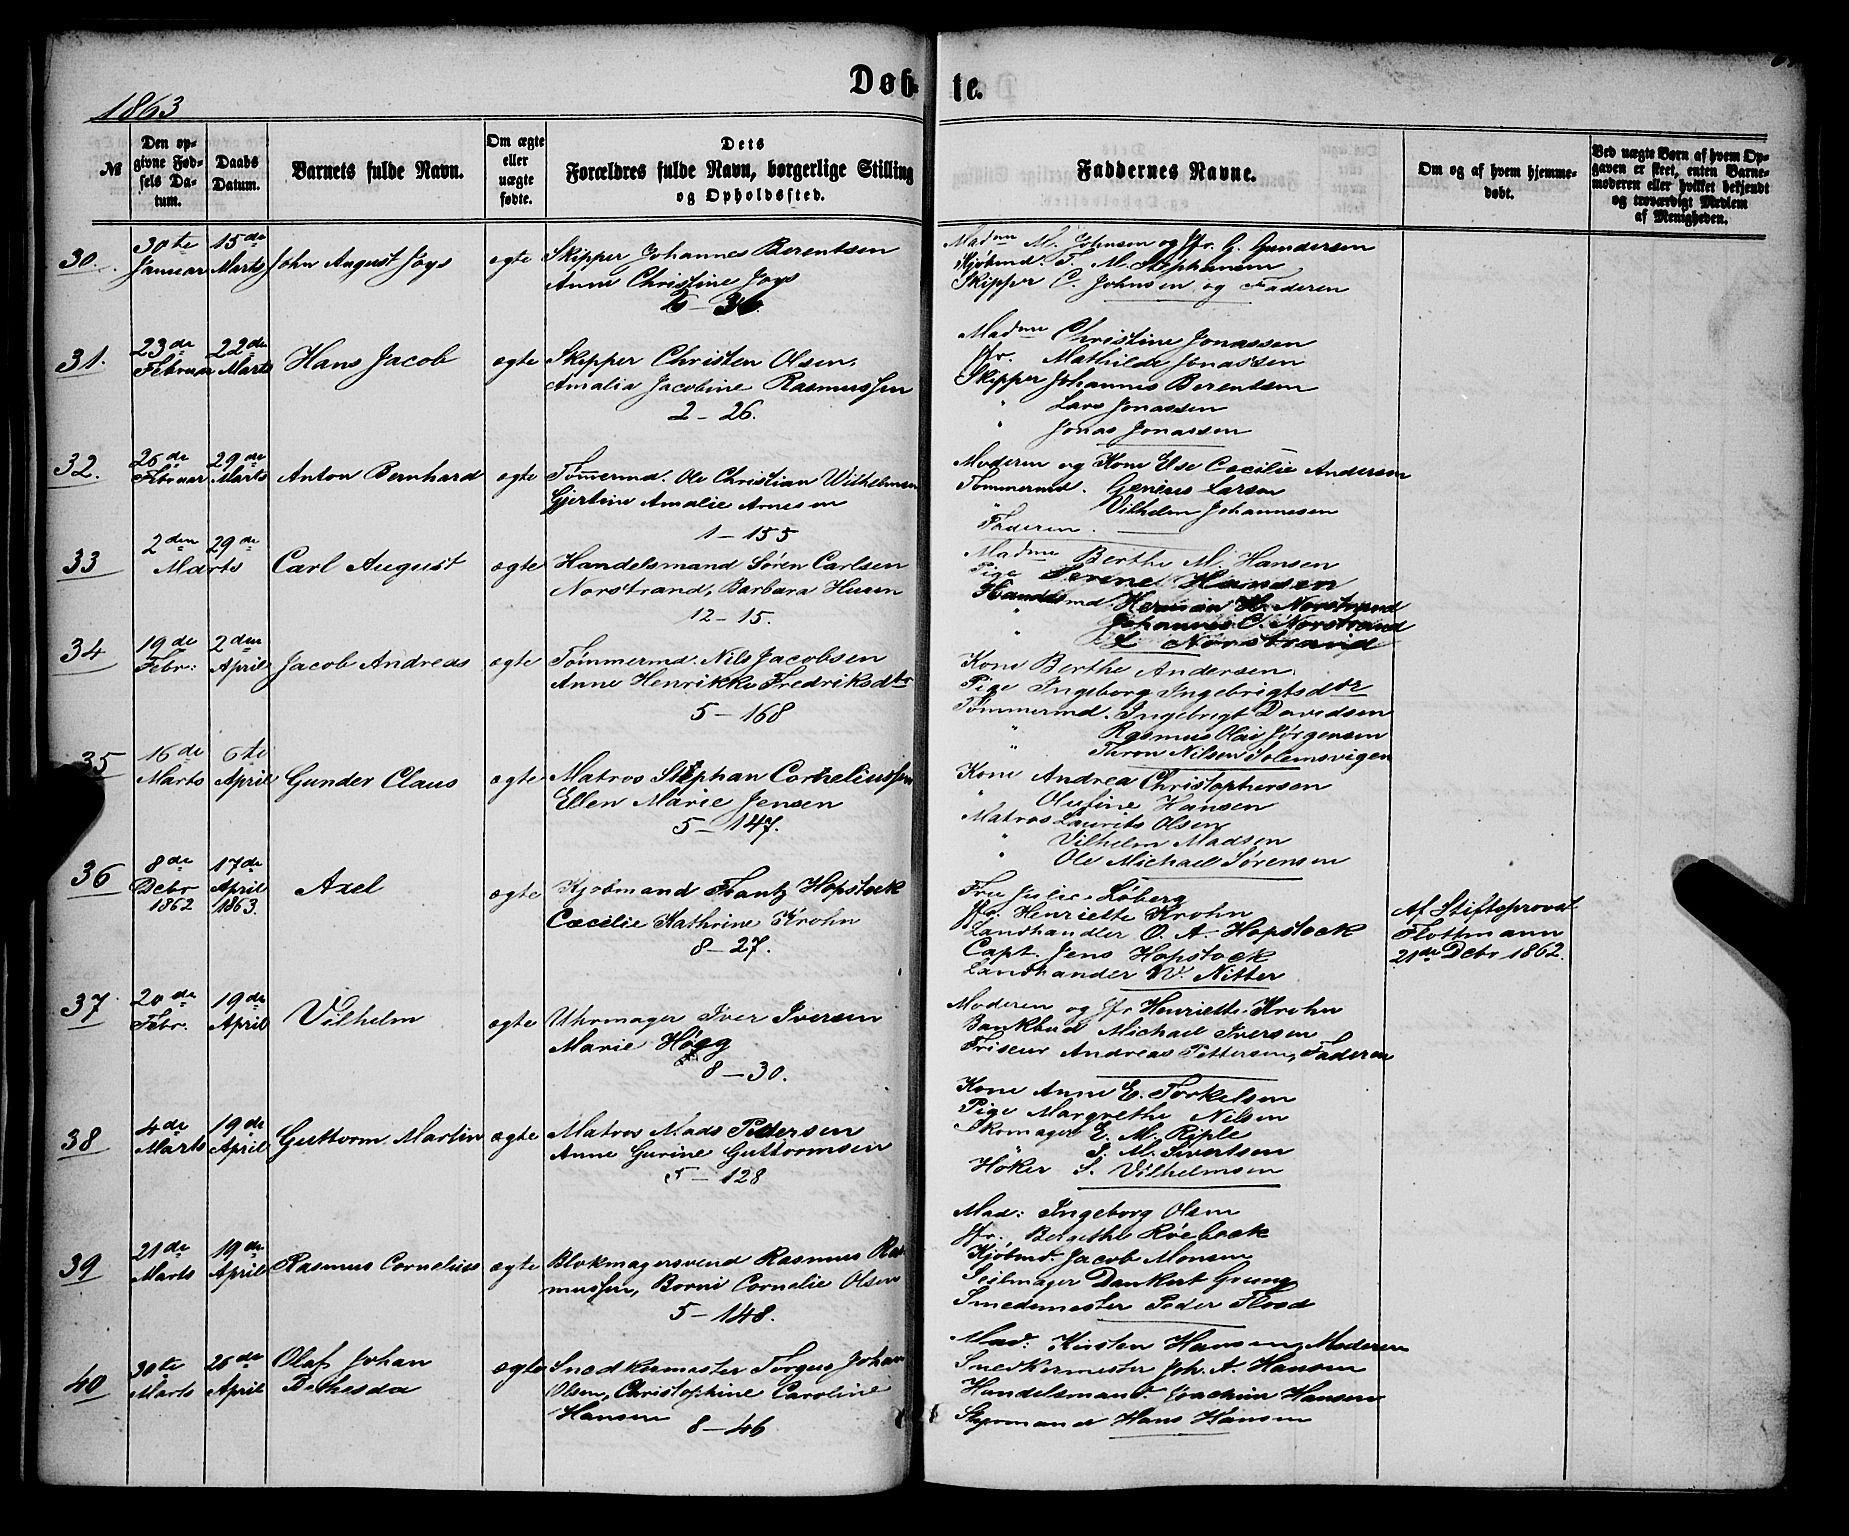 Døb-
te.
1863
№
Den op-
givne Fød-
sels Da-
tum.
Daabs
Datum.
Barnets fulde Navn.
Om ægte
eller
uægte
fødte.
Dets
Forældres fulde Navn, borgerlige Stilling
og Opholdssted.
Faddernes Navne.
Om og af hvem hjemme-
døbt.
Ved uægte Børn af hvem Op-
gaven er skeet, enten Barne-
moderen eller hvilket bekjendt
og troværdigt Medlem
af Menigheden.
30.
30te
Januar
15de
Marts
John August Joys
ægte
Skipper Johannes Berentsen
Anne Christine Joys
36
Madme M. Johnsen og Jfr. G. Gundersen
Kjøbmd. T. M. Stephansen
Skipper C. Johnsen og Faderen
31.
23de
Februar
22de
Marts
Hans Jacob
ægte
Skipper Christen Olsen,
Amalia Jacobine Rasmussen
2 - 26.
Madme Christine Jonassen
Jfr. Mathilde Jonassen
Skipper Johannes Berentsen
" Lars Jonassen
" Jonas Jonassen
32.
26de
Februar
29de
Marts
Anton Bernhard
ægte
Tømermd. Ole Christian Wilhelmsen
Gjertine Amalie Arnesen
1 - 155
Moderen og Kone Else Cecilie Andersen
Tømmermd. Genius Larsen
" Vilhelm Johannesen
Faderen.
33
2den
Marts
29de
Carl August
ægte
Handelsmand Søren Carlsen
Norstrand, Barbara Husen
12 - 15.
Madme Berthe M. Hansen
Pige Serine Hansen
Handelsmd. Herman H. Norstrand
" Johannes C. Norstrand
" L. Norstrand
34
19de
Febr:
2den
April
Jacob Andreas
ægte
Tømmermd. Nils Jacobsen
Anne Henrikke Fredriksdtr
5 - 168
Kone Berthe Andersen.
Pige Ingeborg Ingebrigtsdtr
Tømmermd. Ingebrigt Davidsen
" Rasmus Olai Jørgensen
" Thron Nilsen Solemsvigen
35
16de
Marts
6te
April
Gunder Claus
ægte
Matros Stephan Corneliussen
Ellen Marie Jensen
5 - 147.
Kone Andrea Christophersen
" Olufine Hansen
Matros Laurits Olsen
" Vilhelm Madsen
" Ole Michael Sørensen
36
8de
Debr
1862
17de
April
1863.
Axel
ægte
Kjøbmand Frantz Hopstock
Cæcilie Kathrine Krohn
8 - 27.
Fru Julie Løberg
Jfr. Henriette Krohn
Landhandler O. A. Hopstock
Capt. Jens Hopstock
Landhandler W. Nitter
Af Stiftsprovst
Flottmann
21de Debr 1862.
37
20de
Febr.
19de
April
Vilhelm
ægte
Uhrmager Iver Iversen
Marie Høeg
8 - 30.
Moderen og Jfr Henriette Krohn
Bankbud Michael Iversen
Friseur Andreas Pettersen, Faderen
38
4de
Marts
19de
April
Guttorm Martin
ægte
Matros Mads Pedersen
Anne Gurine Guttormsen
5 - 128
Kone Anne E. Torkelsen
Pige Margrethe Nilsen
Skomager E. M. Riple
" S. M. Sivertsen
Høker S. Vilhelmsen
39
21de
Marts
19de
April
Rasmus Cornelius
ægte
Blokmagersvend Rasmus Ras-
mussen, Borni Cornelie Olsen
5 - 148.
Mad: Ingeborg Olsen
Jfr. Bergethe Roebock
Kjøbmd. Jacob Monsen
Seilmager Dankert Grung
Smedemester Peder Flood
40
30te
Marts
26de
April
Olaf Johan
Bethesda
ægte
Snedkermester Torgus Johan
Olsen, Christophine Caroline
Hansen
8 - 46
Mad. Kirsten Hansen, Moderen
Snedkermester Joh. A. Hansen
Handelsmand Joachim Hansen
Styrmand Hans Hansen